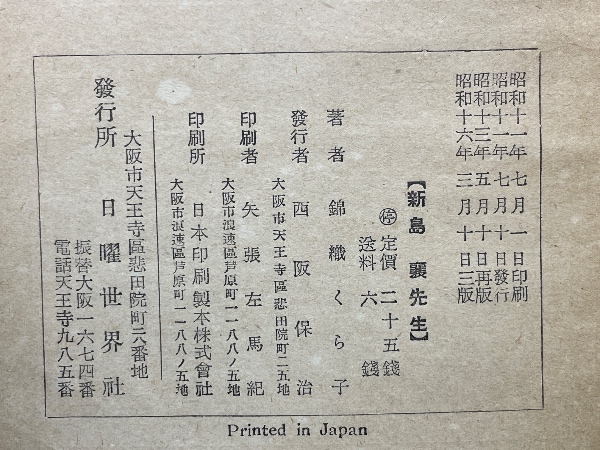 昭和十一年七月一日印刷
昭和十一年七月十日發行
昭和十三年五月十日再版
昭和十六年三月十日三版
【新島襄先生】
㊡定價二十五錢
送料六錢
著者錦織くら子
發行者西阪保治
大阪市天王寺區悲田院町二五地
印刷者矢張左馬紀
大阪市浪速區芦原町一一八八ノ五地
印刷所日本印刷製本株式會社
大阪市浪速區芦原町一一八八ノ五地
發行所日曜世界社
大阪市天王寺區悲田院町二六番地
振替大阪一六七四番
電話天王寺九八五番
Printed in Japan